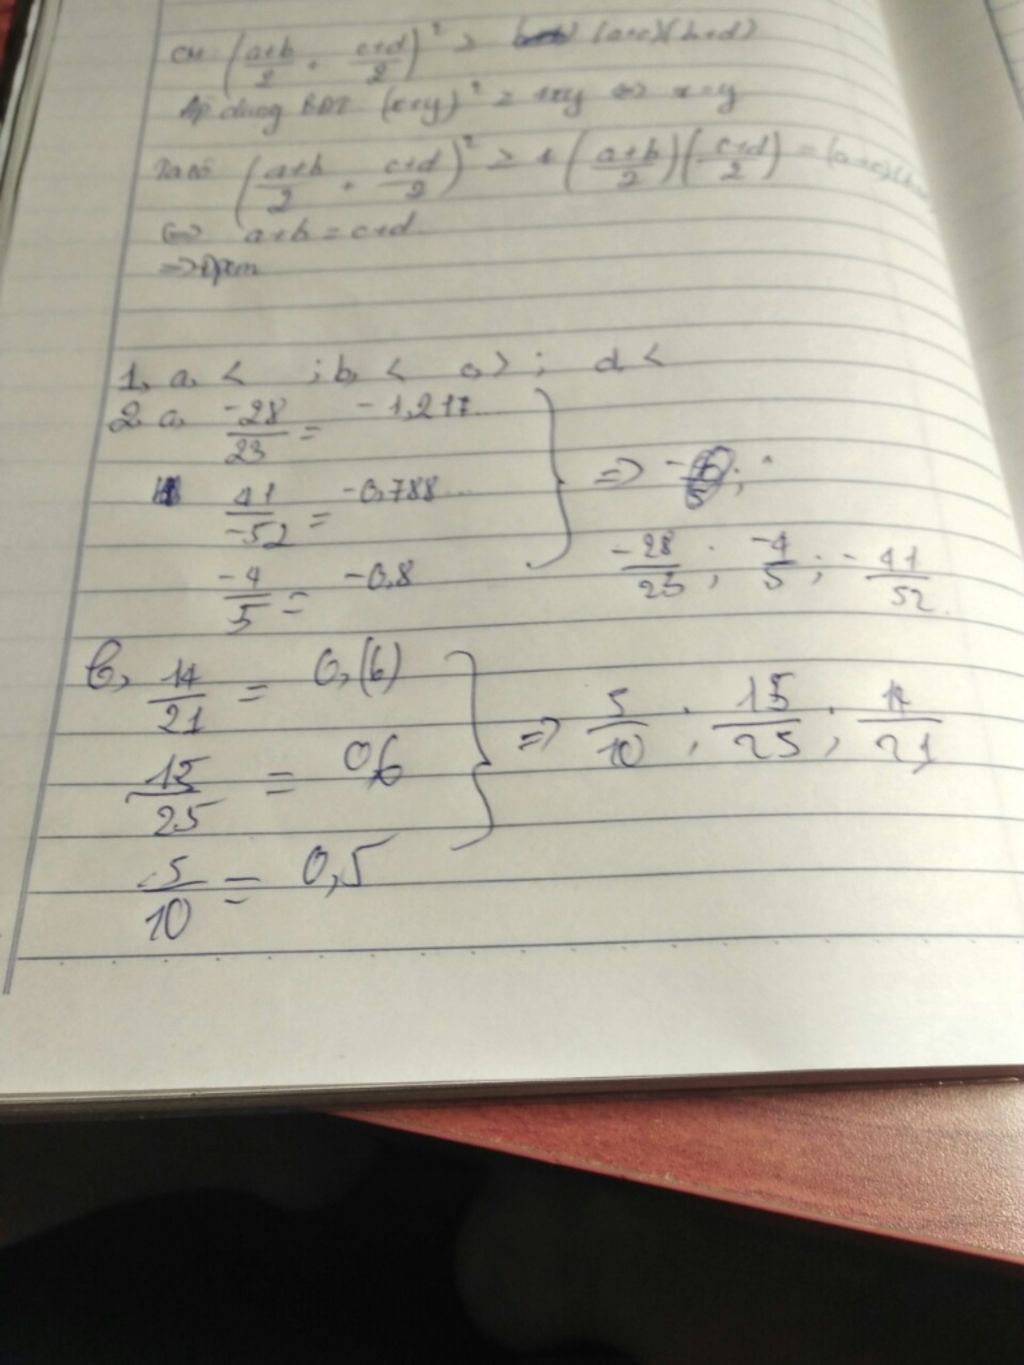 CM (a+b/2 + c+d/2)² ≥ (a+c)(b+d)
Áp dụng BĐT (x+y)² ≥ 4xy ⇔ x=y
Ta có (a+b/2 + c+d/2)² ≥ 4(a+b/2)(c+d/2) = (a+c)(b
⇔ a+b = c+d
⇒ Đpcm
1, a, < ; b, < c, > ; d <
2 a, -28/23 = -1,217...
41/-52 = -0,788...
-4/5 = -0,8
⇒ -28/23 ; -4/5 ; -41/52
b, 14/21 = 0,(6)
15/25 = 0,6
5/10 = 0,5
⇒ 5/10 ; 15/25 ; 14/21